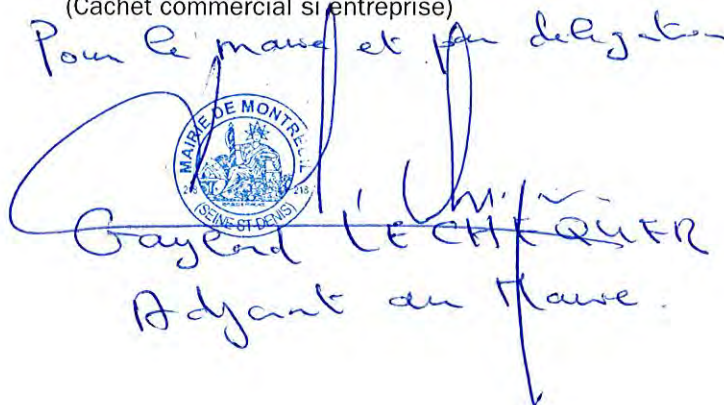 (Cachet commercial si entreprise)
Pour le maire et par délégation
MAIRIE DE MONTREUIL
218
(SEINE-ST-DENIS)
Gaylord LE CHEQUER
Adjoint au Maire.